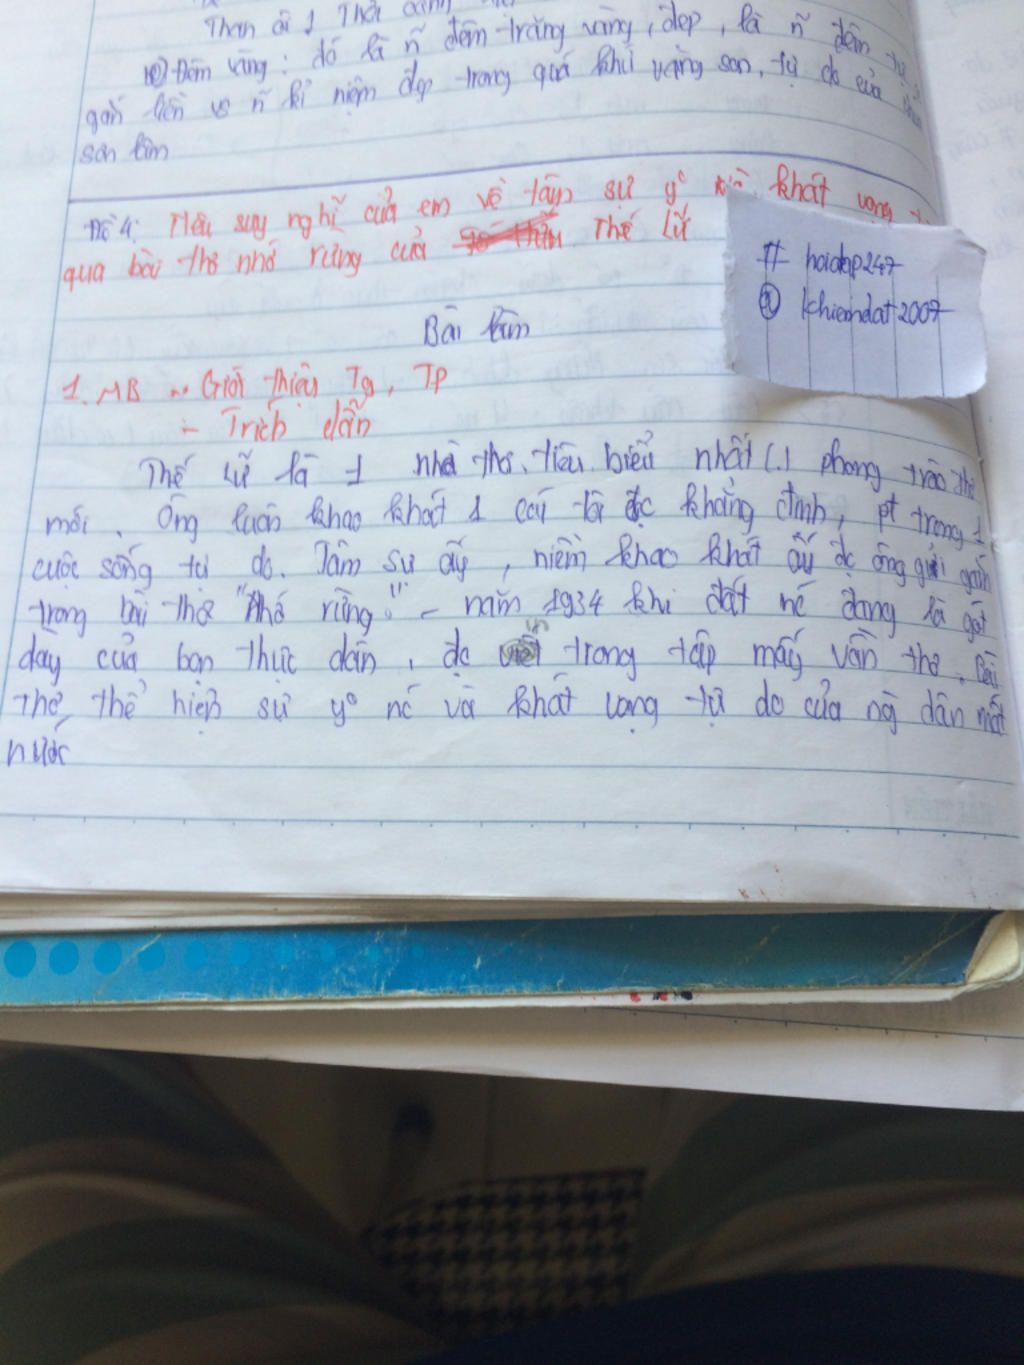 Than ôi ! Thời
10) Đêm vàng : đó là ~ñ đêm trăng vàng, đẹp, là ~ñ đêm
gắn liền vs ~ñ kỉ niệm đẹp trong quá khứ vàng son, tự do của
sơn lâm
Đề 4: Nêu suy nghĩ của em về tâm sự y° khát vọng
qua bài thơ nhớ rừng của Thế Lữ
# hoidap247
@ khiemdat2007
Bài làm
1. MB -- Giới thiệu Tg, TP
- Trích dẫn
Thế Lữ là 1 nhà thơ tiêu biểu nhất (.) phong trào thơ
mới. Ông luôn khao khát 1 cái tôi đc khẳng định, pt trong 1
cuộc sống tự do. Tâm sự ấy, niềm khao khát ấy đc ông gửi gắm
trong bài thơ "Nhớ rừng." - năm 1934 khi đất nc đang là gót
dày của bọn thực dân, đc in trong tập mấy vần thơ. Bài
thơ thể hiện sự y° nc và khát vọng tự do của ng dân mất
nước